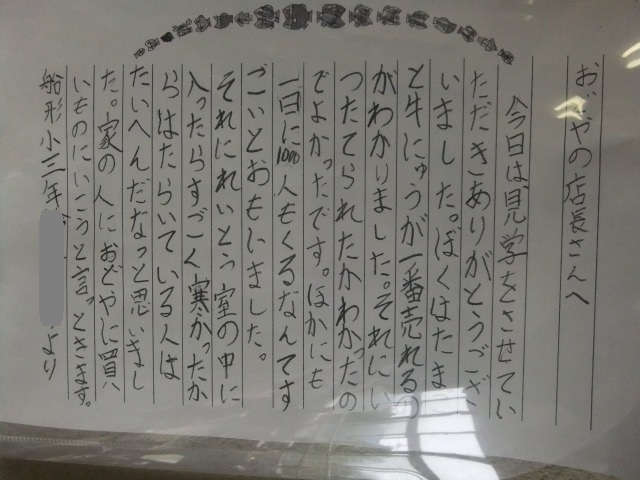 おどやの店長さんへ
今日は見学をさせてい
ただきありがとうござ
いました。ぼくはたまご
と牛にゅうが一番売れるの
がわかりました。それにい
つたてられたかわかったの
でよかったです。ほかにも
一日に1000人もくるなんてす
ごいとおもいました。
それにれいとう室の中に
入ったらすごく寒かったか
らはたらいている人は
たいへんだなっと思いまし
た。家の人におどやに買
いものにいこうと言っときます。
船形小三年
より